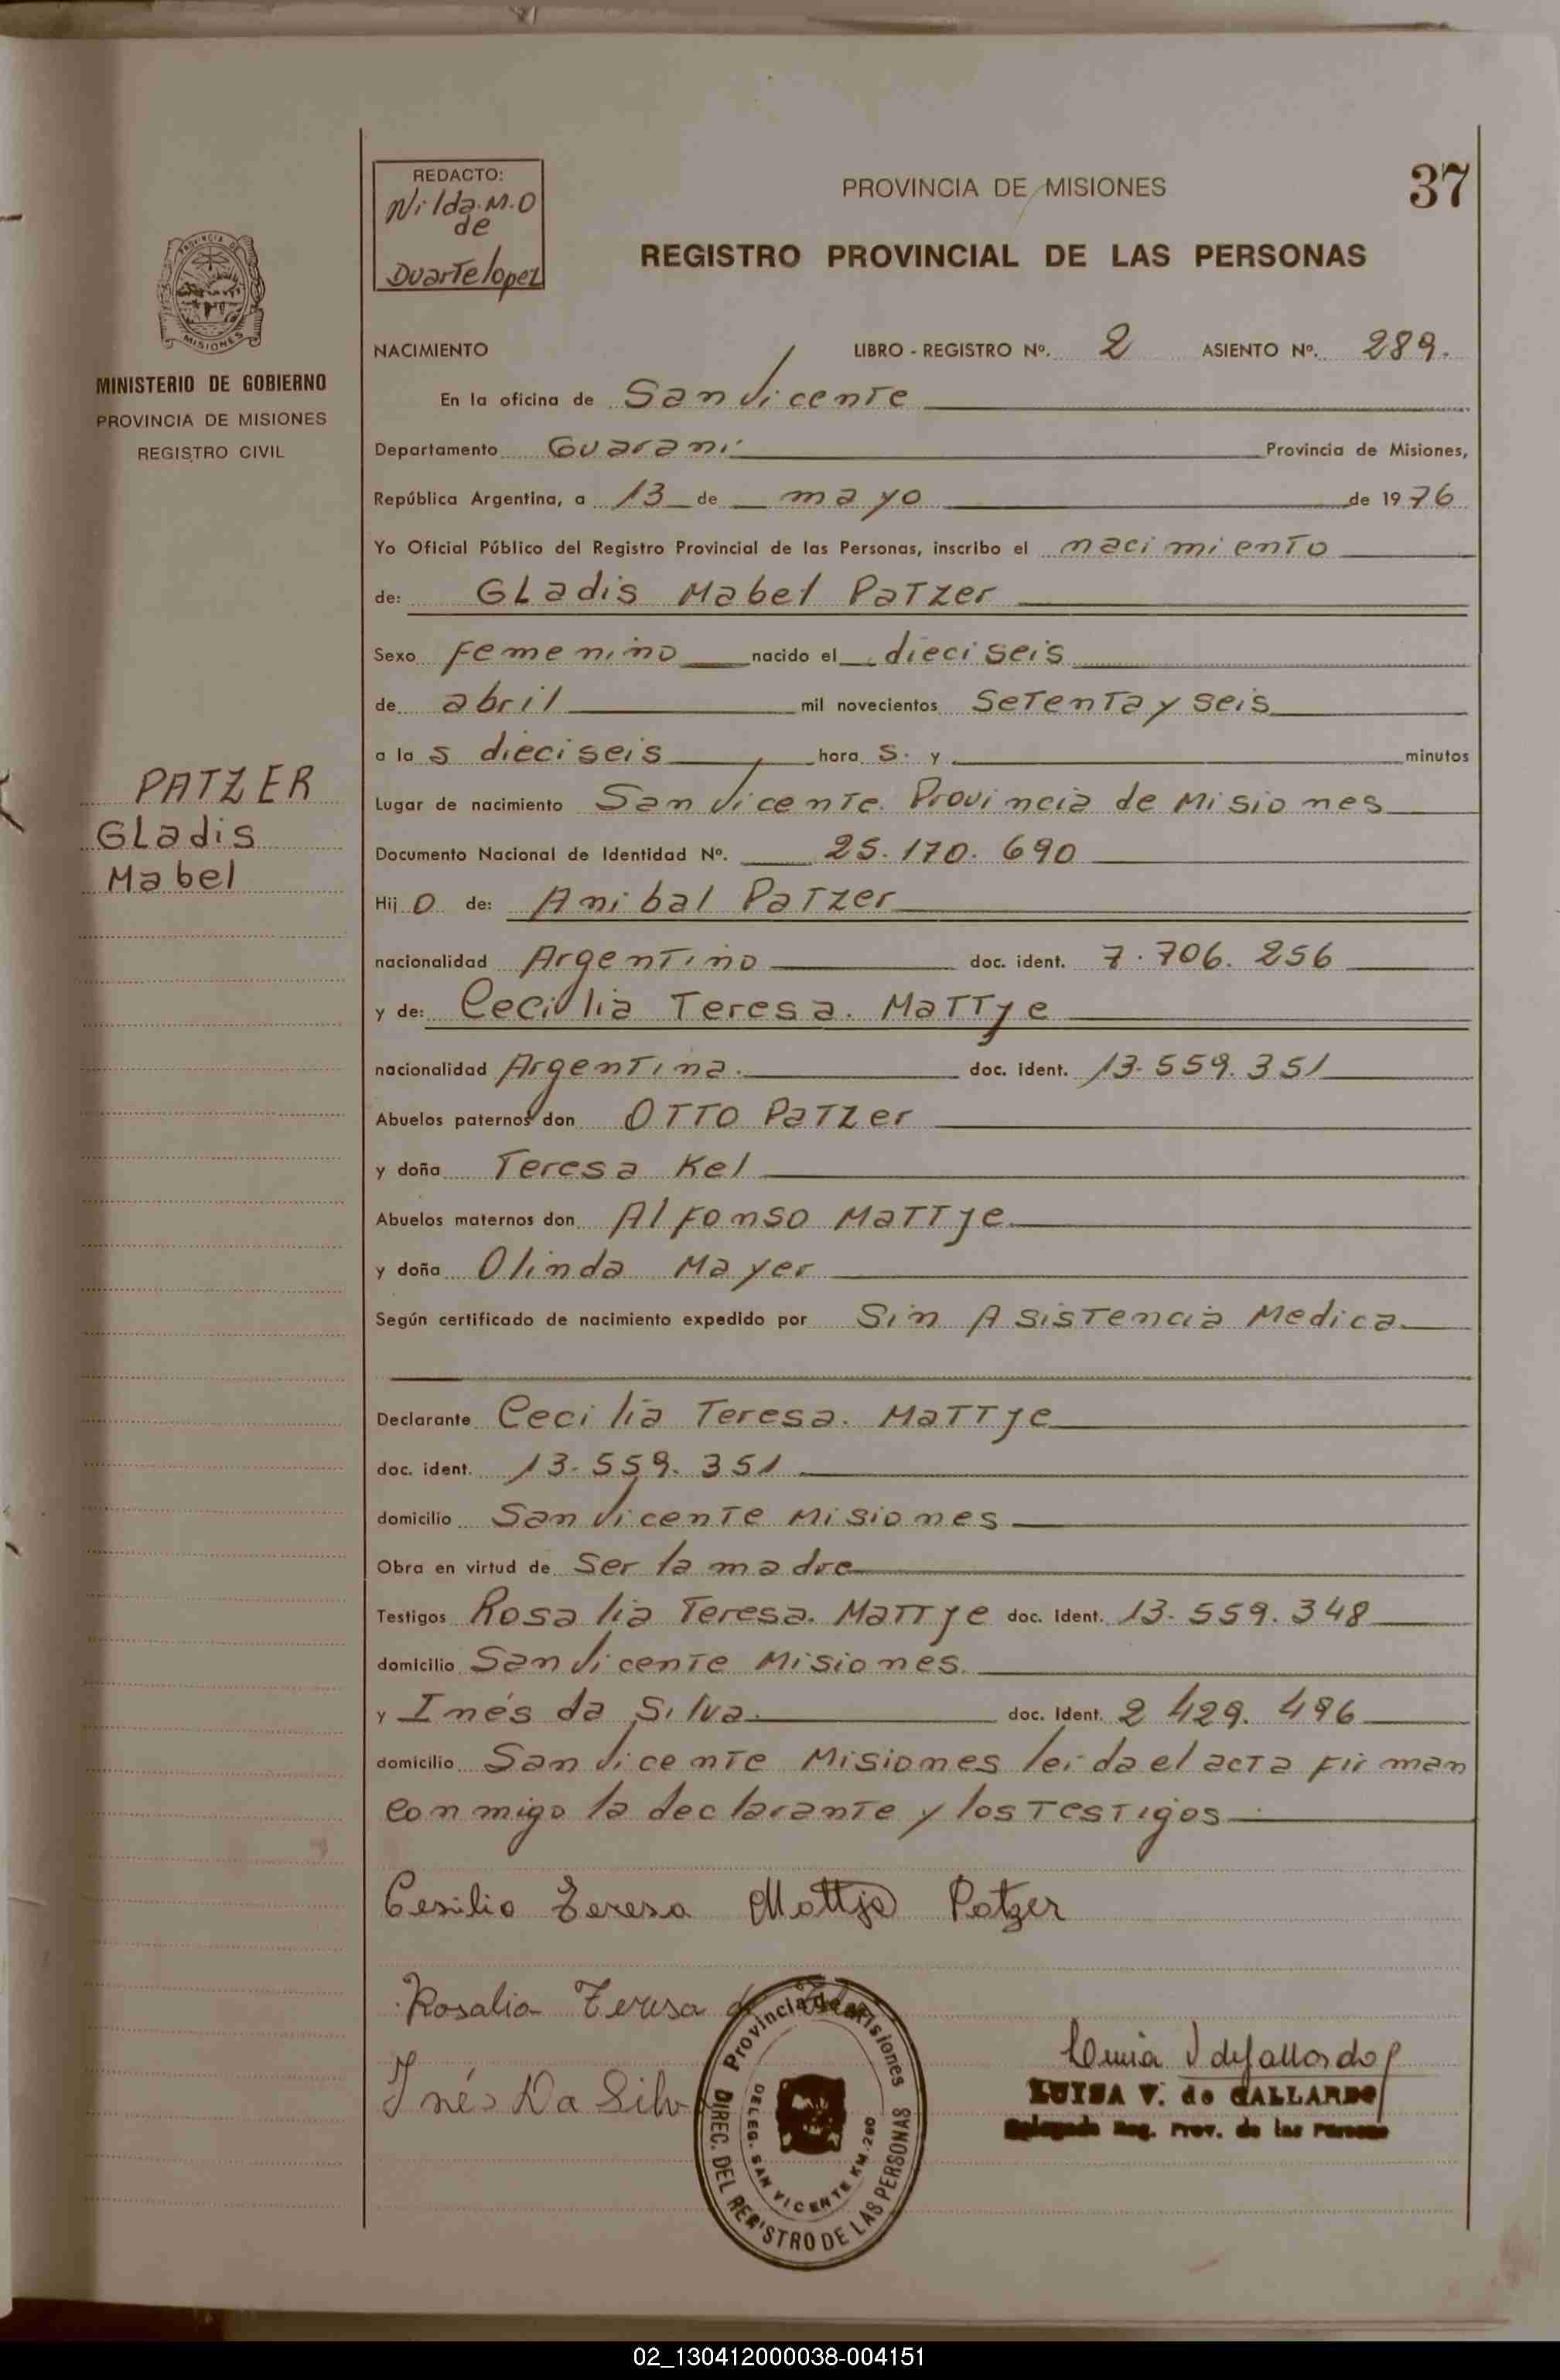 37
REDACTO:
Nilda.M.O
de
Duarte lopez
PROVINCIA DE MISIONES
REGISTRO PROVINCIAL DE LAS PERSONAS
PROVINCIA DE
MISIONES
MINISTERIO DE GOBIERNO
PROVINCIA DE MISIONES
REGISTRO CIVIL
NACIMIENTO LIBRO - REGISTRO Nº. 2 ASIENTO Nº. 289.
En la oficina de San Vicente
Departamento Guaraní Provincia de Misiones,
República Argentina, a 13 de mayo de 1976
Yo Oficial Público del Registro Provincial de las Personas, inscribo el nacimiento
de: GLadis Mabel Patzer
Sexo Femenino nacido el dieciseis
de abril mil novecientos Setenta y seis
a la s dieciseis hora s. y minutos
Lugar de nacimiento San Vicente. Provincia de Misiones
Documento Nacional de Identidad Nº. 25.170.690
PATZER
GLadis
Mabel
Hij o de: Anibal Patzer
nacionalidad Argentino doc. ident. 7.706.256
y de: Cecilia Teresa. Mattje
nacionalidad Argentina. doc. ident. 13.559.351
Abuelos paternos don OTTO Patzer
y doña Teresa Kel
Abuelos maternos don Alfonso Mattje
y doña Olinda Mayer
Según certificado de nacimiento expedido por Sin Asistencia Medica
Declarante Cecilia Teresa. Mattje
doc. ident. 13.559.351
domicilio San Vicente Misiones
Obra en virtud de Ser la madre
Testigos Rosalia Teresa. Mattje doc. ident. 13.559.348
domicilio San Vicente Misiones.
y Inés da Silva. doc. ident. 2 429.496
domicilio San Vicente Misiones leida el acta firman
conmigo la declarante y los testigos
Cesilia Teresa Mattje Patzer
Rosalia Teresa
Inés Da Silv
Provincia de Misiones
DIREC. DEL REGISTRO DE LAS PERSONAS
DELEG. SAN VICENTE KM. 280
LUISA V. de GALLARDO
Delegada Reg. Prov. de las Personas
02_130412000038-004151